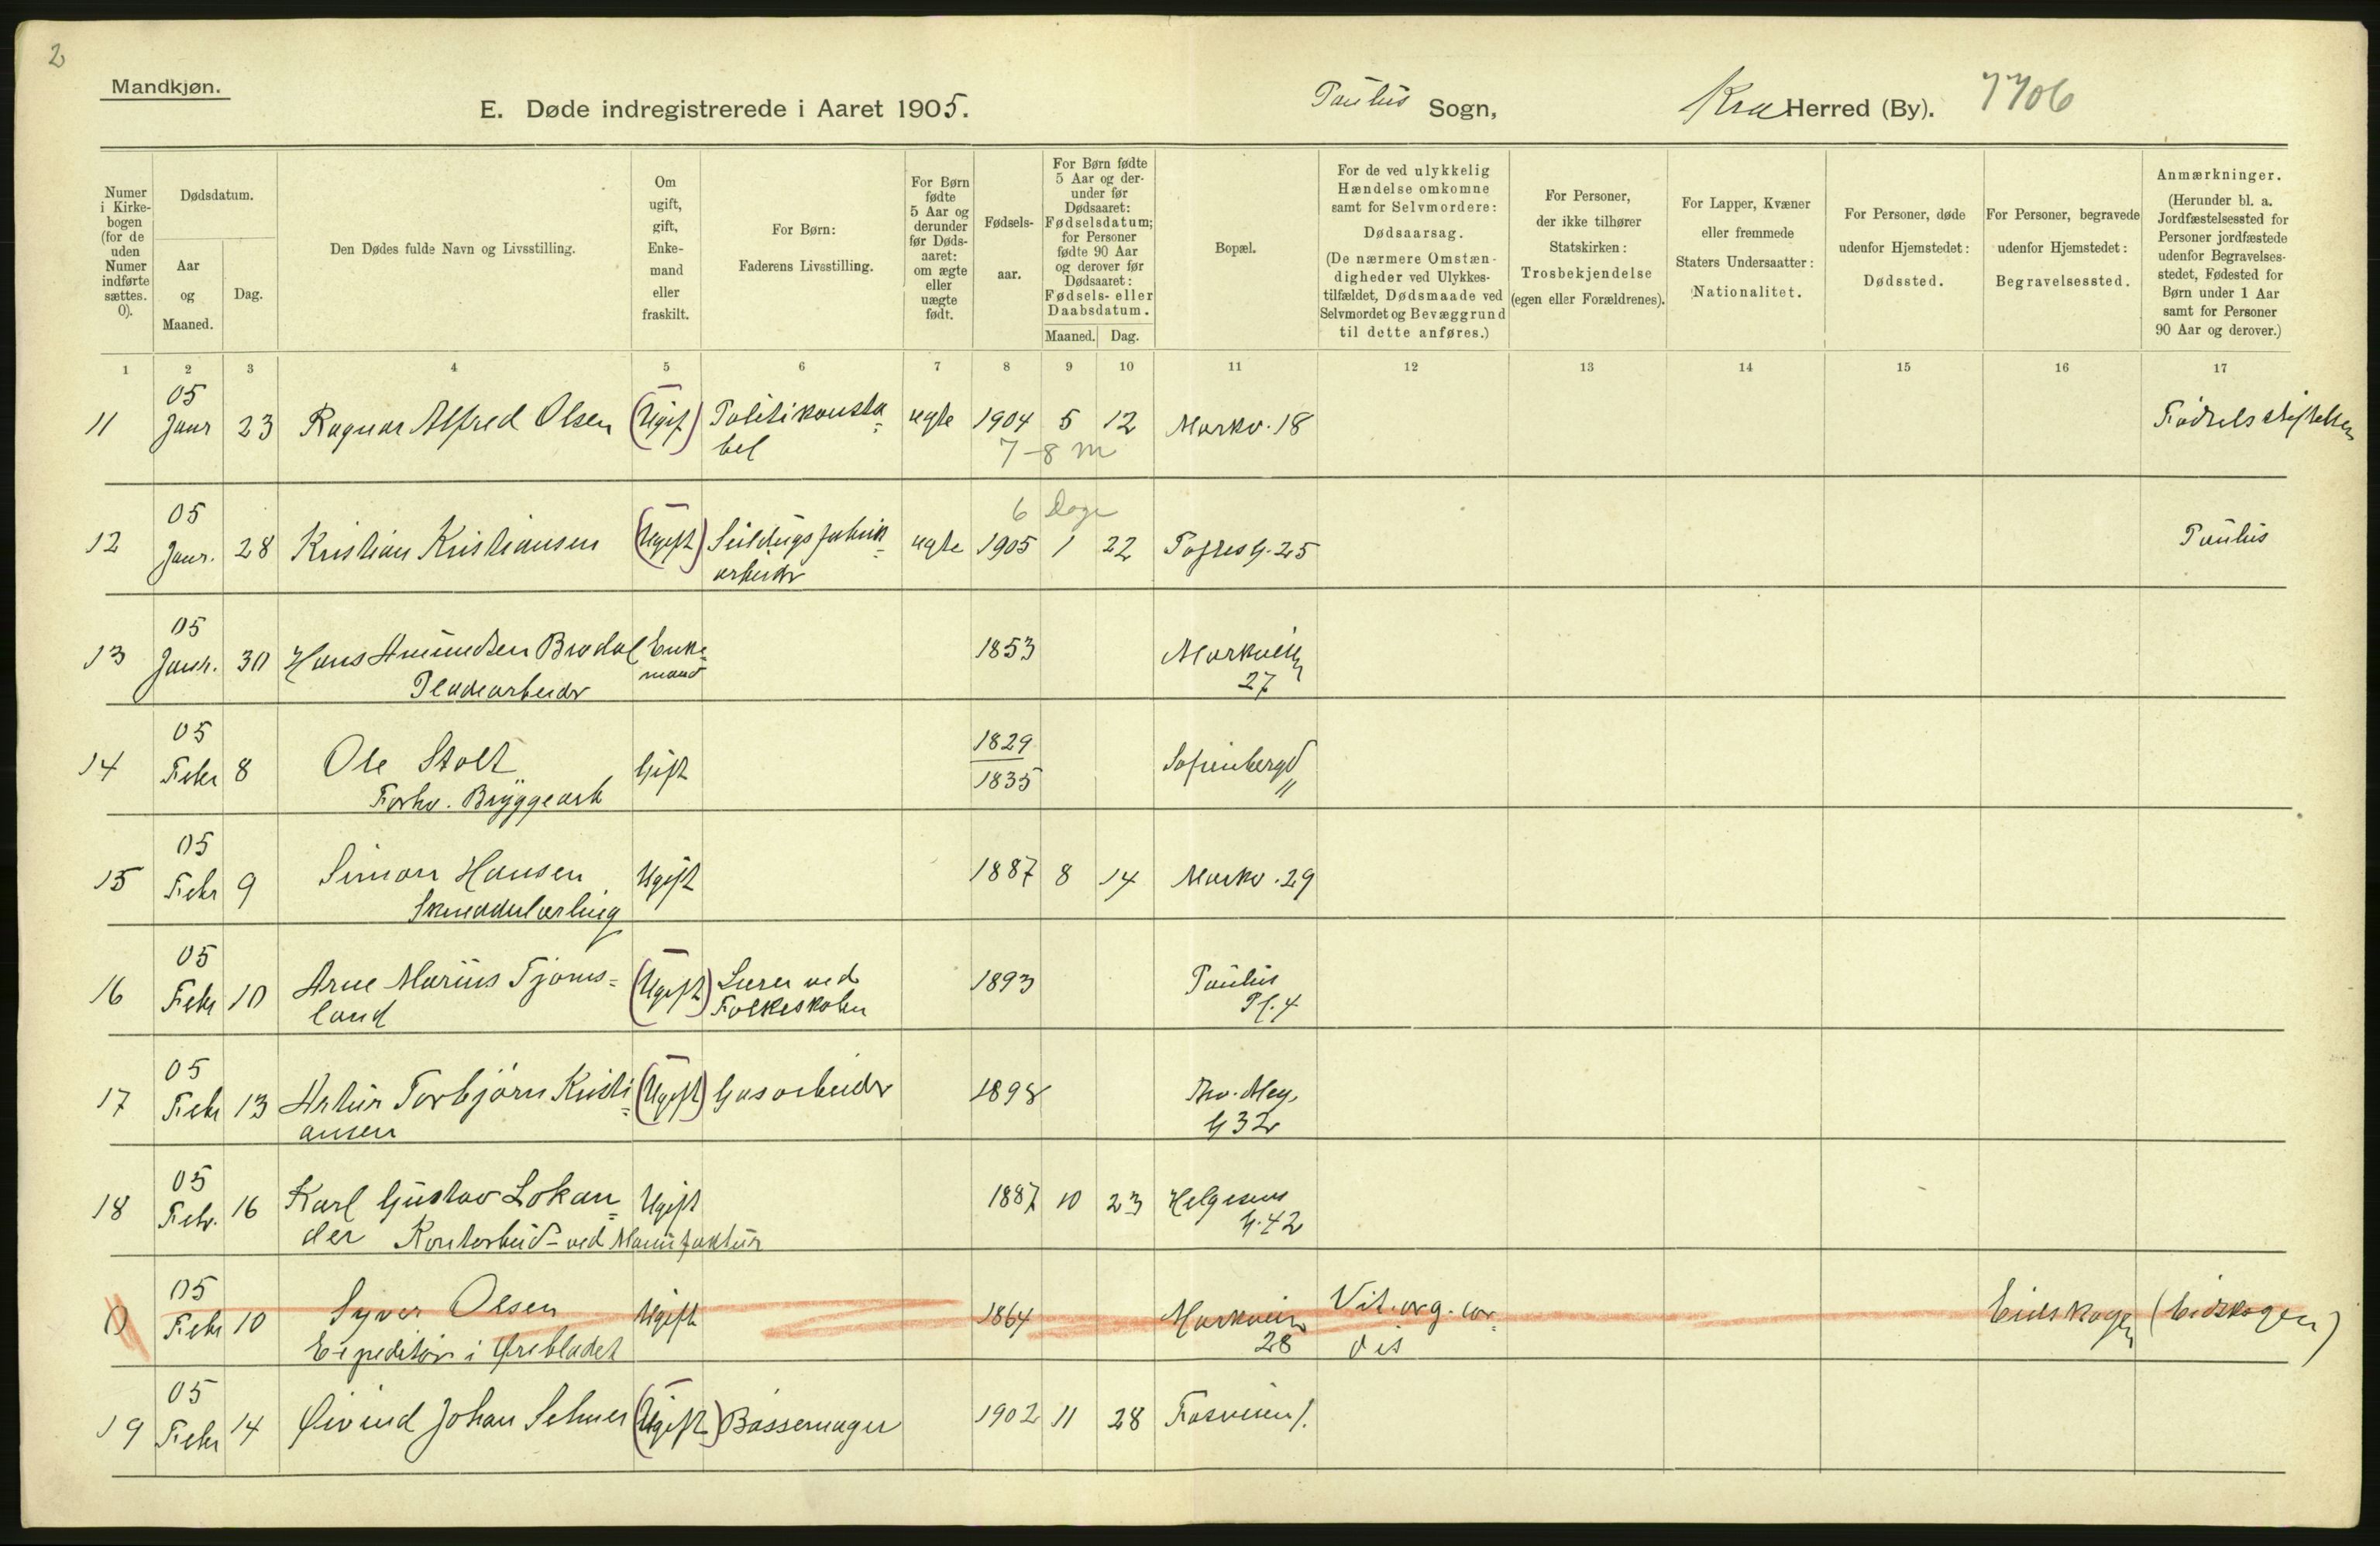 2
Mandkjøn.
E. Døde indregistrerede i Aaret 1905.
Paulus Sogn,
Kra Herred (By).
7706
Numer i Kirkebogen (for de uden Numer indførte sættes. 0).
Dødsdatum.
Aar og Maaned.
Dag.
Den Dødes fulde Navn og Livsstilling.
Om ugift, gift, Enkemand eller fraskilt.
For Børn: Faderens Livsstilling.
For Børn fødte 5 Aar og derunder før Dødsaaret: om ægte eller uægte født.
Fødselsaar.
For Børn fødte 5 Aar og derunder før Dødsaaret: Fødselsdatum; for Personer fødte 90 Aar og derover før Dødsaaret: Fødsels- eller Daabsdatum.
Maaned. Dag.
Bopæl.
For de ved ulykkelig Hændelse omkomne samt for Selvmordere: Dødsaarsag. (De nærmere Omstændigheder ved Ulykkestilfældet, Dødsmaade ved Selvmordet og Bevæggrund til dette anføres.)
For Personer, der ikke tilhører Statskirken: Trosbekjendelse (egen eller Forældrenes).
For Lapper, Kvæner eller fremmede Staters Undersaatter: Nationalitet.
For Personer, døde udenfor Hjemstedet: Dødssted.
For Personer, begravede udenfor Hjemstedet: Begravelsessted.
Anmærkninger. (Herunder bl. a. Jordfæstelsessted for Personer jordfæstede udenfor Begravelsesstedet, Fødested for Børn under 1 Aar samt for Personer 90 Aar og derover.)
1 2 3 4 5 6 7 8 9 10 11 12 13 14 15 16 17
05
11 Janr 23 Ragnar Alfred Olsen (Ugift) Politikonsta= ægte 1904 5 12 Markv. 18 Fødselsstiftelsen
bel 7-8 m
05 6 Dage
12 Janr. 28 Kristian Kristiansen (Ugift) Seildugsfabrik= ægte 1905 1 22 Toftes G. 25 Paulus
arbeider
05
13 Janr. 30 Hans Amundsen Brodal Enke= 1853 Markveien
Pladearbeider mand 27
05 1829
14 Febr 8 Ole Stolt Gift 1835 Sofienbergd
Forhv. Bryggearb "
05
15 Febr 9 Simon Hansen Ugift 1887 8 14 Markv. 29
Skrædderlærling
05
16 Febr 10 Arne Marius Tjoms= (Ugift) Lærer ved 1893 Paulus
land Folkeskolen Pl. 4
05
17 Febr 13 Artur Torbjørn Kristi= (Ugift) Gasarbeider 1898 Thv. Mey.
ansen G 32
05
18 Febr. 16 Karl Gustav Lokan= Ugift 1887 10 23 Helgesens
der Kontorbud ved Manufaktur G. 42
05
0 Febr 10 Syver Olsen Ugift 1864 Markveien Vit. org. cor= Eidskogen (Eidskogen)
Expeditør i Ørebladet 28 dis
05
19 Febr 14 Øivind Johan Selmer (Ugift) Bøssemager 1902 11 28 Fosveien 1.